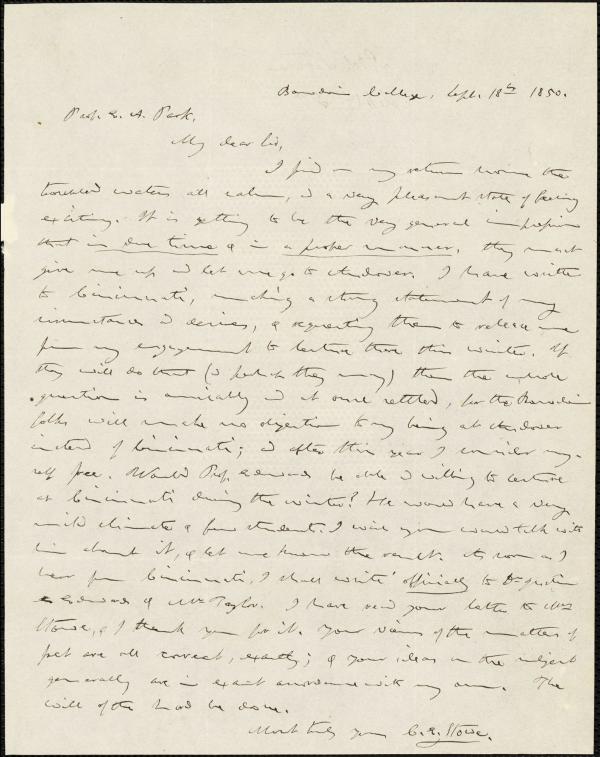 Bowdoin College, Sept. 18th 1850.
Prof. E. A. Park,
My dear Sir,
I find on my return home the
troubled waters all calm, & a very pleasant state of feeling
existing. It is getting to be the very general impression
that in due time & in a proper manner, they must
give me up & let me go to Andover. I have written
to Cincinnati, making a strong statement of my
circumstances & desires, & requesting them to release me
from my engagement to lecture there this winter. If
they will do that (& perhaps they may) then the whole
question is amicably & at once settled, for the Bowdoin
folks will make no objection to my being at Andover
instead of Cincinnati; & after this year I consider my-
self free. Would Prof. Edwards be able & willing to lecture
at Cincinnati during the winter? He would have a very
mild climate & few students. I wish you would talk with
him about it, & let me know the result. As soon as I
hear from Cincinnati, I shall write officially to Dr.
Edwards & Mr. Taylor. I have read your letter to Mrs
Stowe, & I thank you for it. Your views of the matters of
fact are all correct, exactly; & your ideas on the subject
generally are in exact accordance with my own. The
will of the Lord be done.
Most truly yours C. E. Stowe.